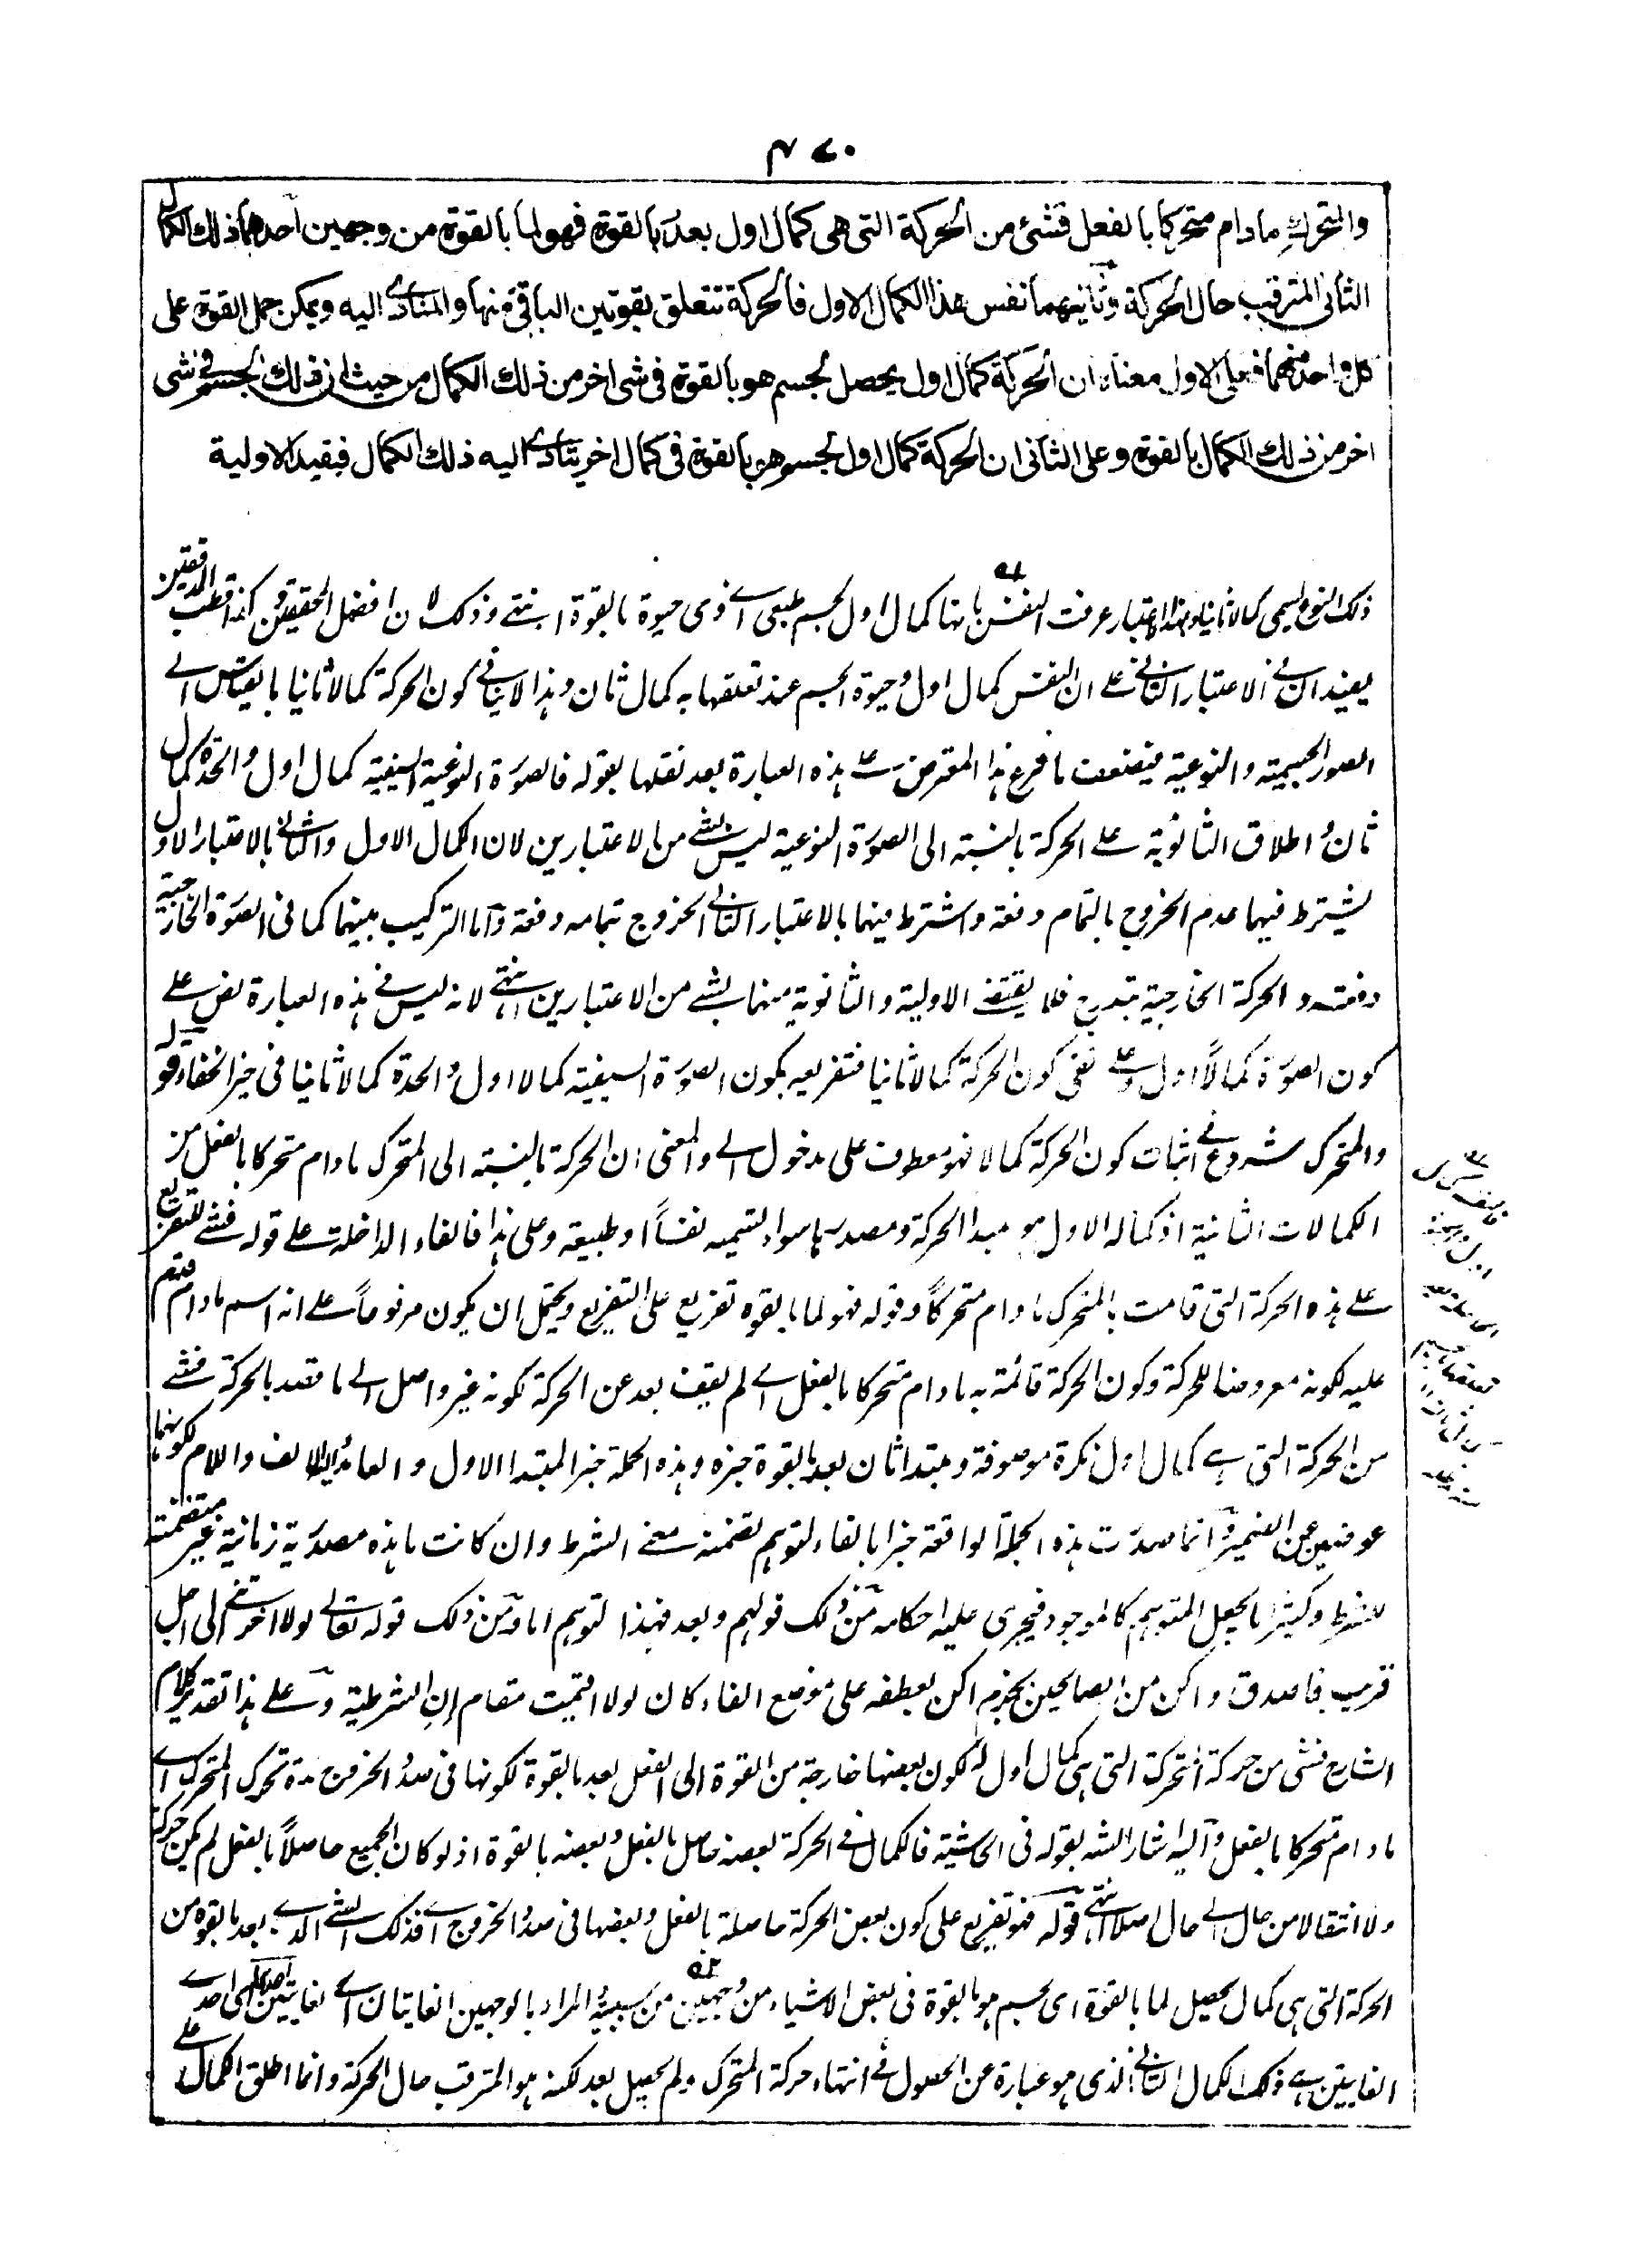 ٤٧٠
والمتحرك مادام متحركا بالفعل فشئ من الحركة التى هى كمال اول بعد بالقوة فهو لما بالقوة من وجهين احدهما ذلك الكمال
الثانى المترقب حال الحركة وثانيهما نفس هذا الكمال الاول فالحركة تتعلق بقوتين الباقى منها والمتأدى اليه ويمكن حمل القوة على
كل واحد منهما فعلى الاول معناه ان الحركة كمال اول يحصل لجسم هو بالقوة فى شى اخر من ذلك الكمال من حيث ان ذلك الجسم فى شى
اخر من ذلك الكمال بالقوة وعلى الثانى ان الحركة كمال اول لجسم هو بالقوة فى كمال اخر يتادى اليه ذلك الكمال فبقيد الاولية
ذلك النوع ويسمى كمالا ثانيا وبهذا الاعتبار عرفت النفس بانها كمال اول لجسم طبعى اے ذى حيوة بالقوة انتهے وذلك لان افضل المحققين كذا قطب المدققين
يفيد ان فے الاعتبار الثانے علے ان النفس كمال اول وحيوة الجسم عند تعلقها به كمال ثان وهذا لا ينافے كون الحركة كمالا ثانيا بالقياس الے
الصور الجسمية والنوعية فيضعف ما فرع هذا المعترض علے هذه العبارة بعد نقلها بقوله فالصورة النوعية السيفية كمال اول والحدة كمال
ثان واطلاق الثانوية علے الحركة بالنسبة الى الصورة النوعية ليس بشے من الاعتبارين لان الكمال الاول والثانے بالاعتبار الاول
يشترط فيهما عدم الخروج بالتمام دفعة واشترط فيهما بالاعتبار الثانے الخروج بتمامه دفعة واما التركيب بينهما كما فى الصورة الخارجية
دفعة و الحركة الخارجية بتدريج فلا يقتضے الاولية والثانوية منهما بشے من الاعتبارين انتهے لانه ليس فے هذه العبارة نص علے
كون الصورة كمالاً اول وعلے نفى كون الحركة كمالا ثانيا فتفريعه بكون الصورة السيفية كمالا اول والحدة كمالا ثانيا فى حيز الخفاء قوله
والمتحرك شروع فے اثبات كون الحركة كمالا فهو معطوف على مدخول الے والمعنى ان الحركة بالنسبة الى المتحرك مادام متحركا بالفعل من
الكمالات الثانية اذ كماله الاول هو مبدا الحركة ومصدرها سواء تسميه نفساً او طبيعة وعلى هذا فالفاء الداخلة علے قوله فشے للتفريع
علے هذه الحركة التى قامت بالمتحرك مادام متحركاً وقوله فهو لما بالقوه تفريع على التفريع ويحتمل ان يكون مرفوعاً علے انه اسم مادام قدم
عليه لكونه معروضا للحركة وكون الحركة قائمة به مادام متحركا بالفعل اے لم يقف بعد عن الحركة لكونه غير واصل الے ما قصد بالحركة فشے
من الحركة التى هے كمال اول نكرة موصوفة ومبتدا ثان بعد بالقوة خبره وهذه الجملة خبر المبتدا الاول والعائد اليه الالف واللام لكونهما
عوضين عن الضمير وانما صدرت هذه الجملة الواقعة خبرا بالفاء لتوهم تضمنه معنے الشرط وان كانت ما هذه مصدرية زمانية غير متضمنة
للشرط وكثيرا ما يجعل المتوهم كالموجود فيجرى عليه احكامه فمن ذلك قولهم وبعد فهذا لتوهم اما ومن ذلك قوله تعالے لولا اخرتنے الى اجل
قريب فاصدق واكن من الصالحين بجزم اكن لعطفه على موضع الفاء كان لولا اقيمت مقام إن الشرطية وعلے هذا تقدير كلام
الشارح فشى من حركة المتحرك التى هى كمال اول لكون بعضها خارجة من القوة الى الفعل بعد بالقوة لكونها فى صدد الخروج مدة تحرك المتحرك اے
مادام متحركا بالفعل واليه اشار الشه بقوله فى الحاشية فالكمال فے الحركة بعضه حاصل بالفعل وبعضه بالقوة اذ لو كان الجميع حاصلاً بالفعل لم يكن حركة
ولا انتقالا من حال الے حال اصلا انتهے قوله فهو تفريع على كون بعض الحركة حاصلة بالفعل وبعضها فى صدد الخروج اے فذلك الشے الذے بعد بالقوه من
الحركة التى هى كمال يحصل لما بالقوة اى لجسم هو بالقوة فى بعض الاشياء من وجهين من سببية والمراد بالوجهين الغايتان اے لغايتين احدے
الغايتين هے ذلك الكمال الثانے الذى هو عبارة عن الحصول فے انتهاء حركة المتحرك ولم يحصل بعد لكنه هو المترقب حال الحركة وانما اطلق الكمال علے